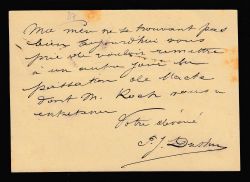 Ma mère ne se trouvant pas
bien aujourd'hui vous
prie de vouloir remettre
à un autre jour la
passation de l'acte
dont M. Roch vous a
entretenu
Votre dévoué